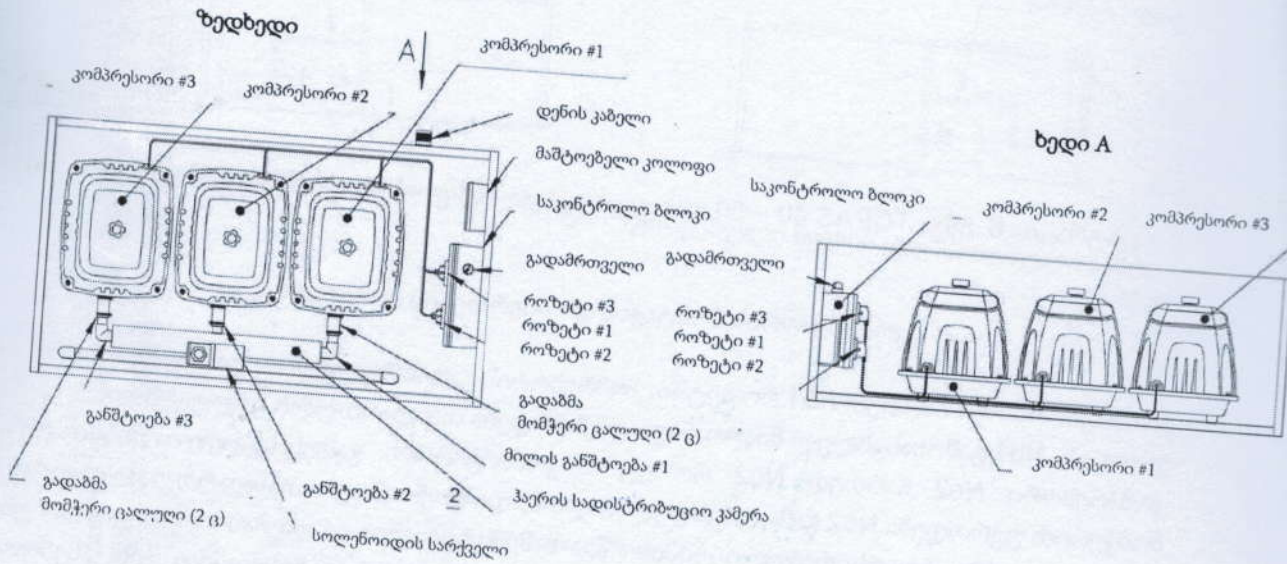 ზედხედი
A
კომპრესორი #1
კომპრესორი #3
კომპრესორი #2
დენის კაბელი
მაშტოებელი კოლოფი
საკონტროლო ბლოკი
გადამრთველი
როზეტი #3
როზეტი #1
როზეტი #2
გადაბმა
მომჭერი ცალუღი (2 ც)
მილის განშტოება #1
ჰაერის სადისტრიბუციო კამერა
განშტოება #3
გადაბმა
მომჭერი ცალუღი (2 ც)
განშტოება #2
2
სოლენოიდის სარქველი
ხედი A
საკონტროლო ბლოკი
კომპრესორი #2
კომპრესორი #3
გადამრთველი
როზეტი #3
როზეტი #1
როზეტი #2
კომპრესორი #1